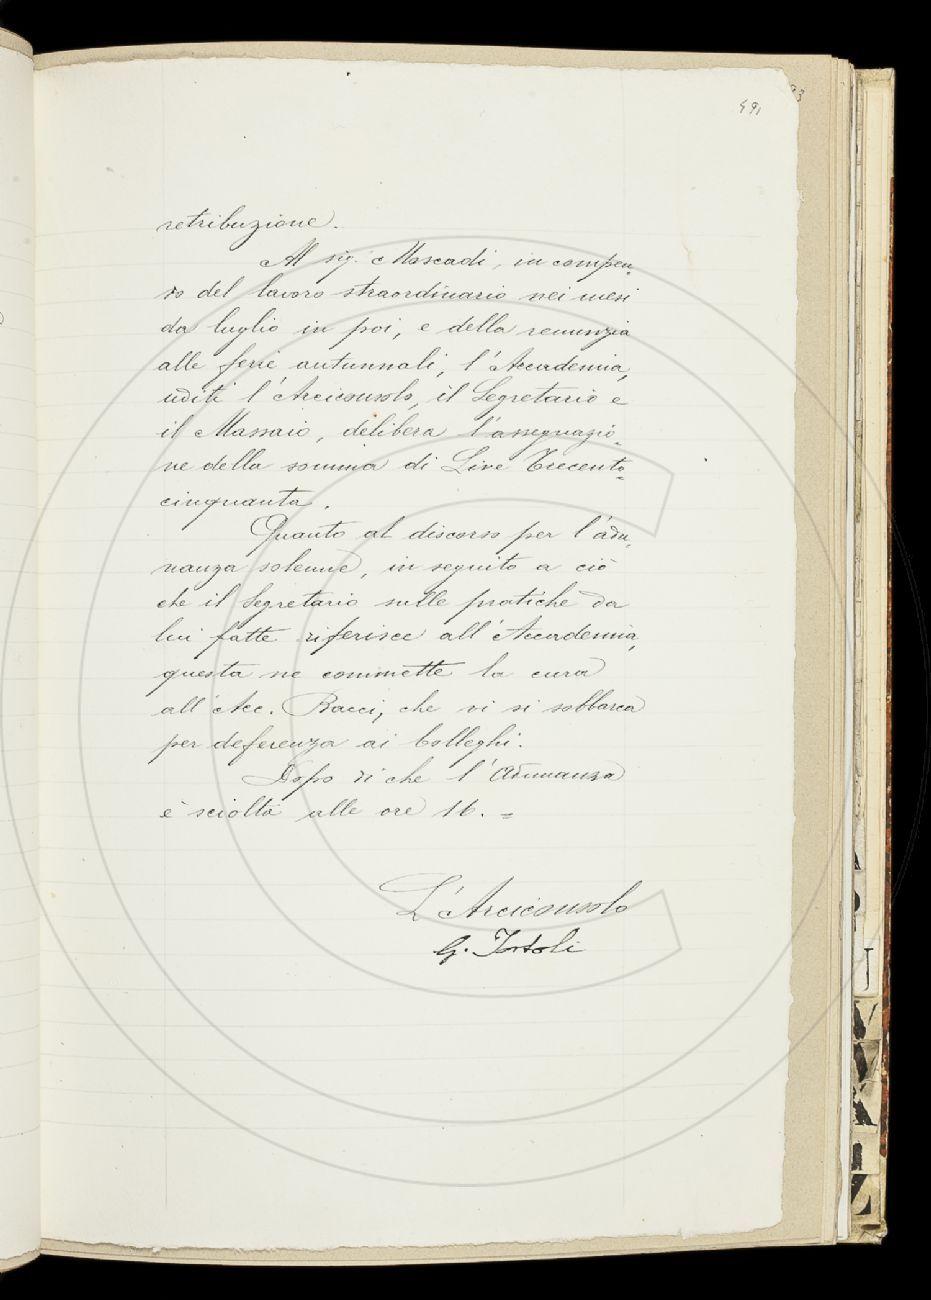 491
93
retribuzione.
Al sig. Moscadi, in compen-
so del lavoro straordinario nei mesi
da luglio in poi, e della renunzia
alle ferie autunnali, l'Accademia,
uditi l'Arciconsolo, il Segretario e
il Massaio, delibera l'assegnazio-
ne della somma di Lire Trecento=
cinquanta.
Quanto al discorso per l'adu-
nanza solenne, in seguito a ciò
che il Segretario sulle pratiche da
lui fatte riferisce all'Accademia,
questa ne commette la cura
all'Acc. Bacci, che vi si sobbarca
per deferenza ai Colleghi.
Dopo di che l'Adunanza
è sciolta alle ore 16. =
L'Arciconsolo
G. Tortoli
U
V
W
X
Z